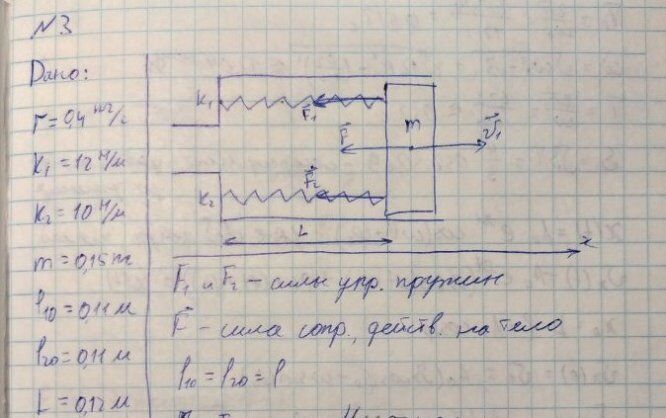 №3
Дано:
r = 0,4 кг/с
k₁ = 12 Н/м
k₂ = 10 Н/м
m = 0,15 кг
l₁₀ = 0,11 м
l₂₀ = 0,11 м
L = 0,12 м
k₁
F₁
m
F
V₁
F₂
k₂
L
x
F₁ и F₂ – силы упр. пружин
F – сила сопр., действ. на тело
l₁₀ = l₂₀ = l